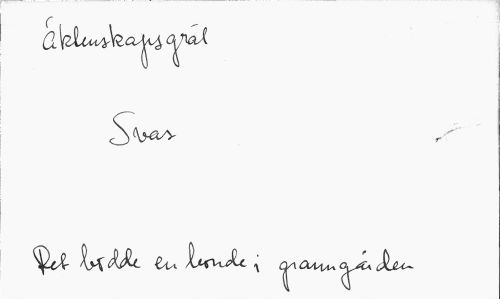 Äktenskapsgräl
Svar
Det bodde en bonde i granngården